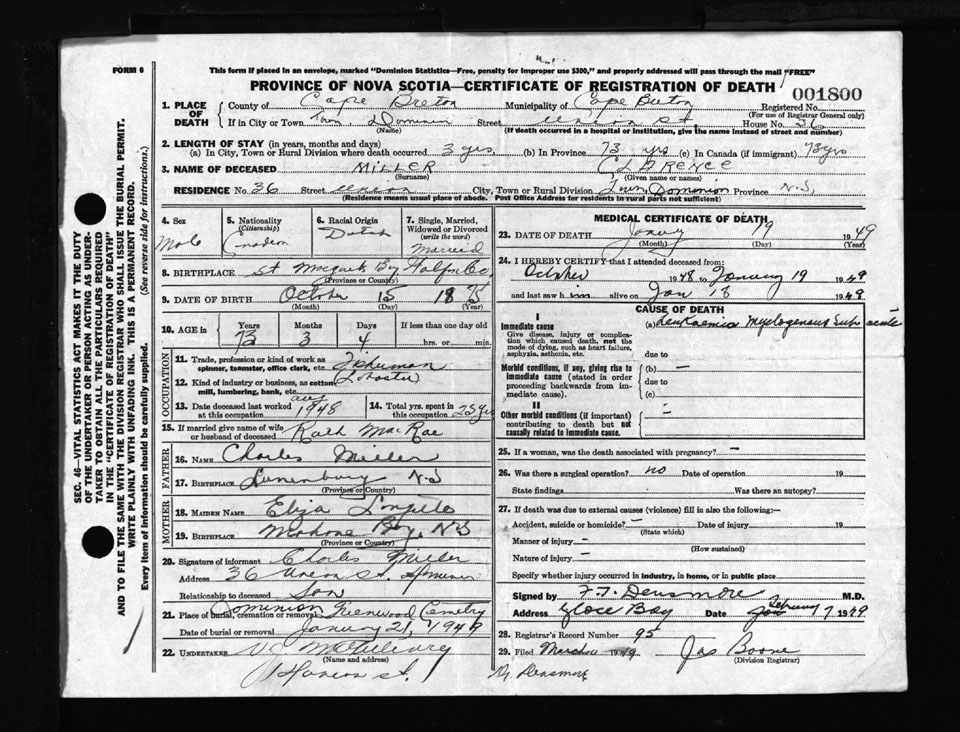 FORM 6
This form if placed in an envelope, marked "Dominion Statistics—Free, penalty for improper use $300," and properly addressed will pass through the mail "FREE"
PROVINCE OF NOVA SCOTIA—CERTIFICATE OF REGISTRATION OF DEATH
001800
1. PLACE OF DEATH
County of Cape Breton Municipality of Cape Breton Registered No.
(For use of Registrar General only)
If in City or Town Town, Dominion Street Union St. House No. 36
(Name) (If death occurred in a hospital or institution, give the name instead of street and number)
2. LENGTH OF STAY (in years, months and days)
(a) In City, Town or Rural Division where death occurred 3 yrs, (b) In Province 73 yrs (c) In Canada (if immigrant) 73 yrs
3. NAME OF DECEASED MILLER CLARENCE
(Surname) (Given name or names)
RESIDENCE No. 36 Street Union City, Town or Rural Division Town, Dominion Province N.S.
(Residence means usual place of abode. Post Office Address for residents in rural parts not sufficient)
4. Sex Male
5. Nationality (Citizenship) Canadian
6. Racial Origin Dutch
7. Single, Married, Widowed or Divorced (write the word) Married
8. BIRTHPLACE St Bay
(Province or Country)
9. DATE OF BIRTH October 15 1875
(Month) (Day) (Year)
10. AGE in Years Months Days If less than one day old
73 3 4 hrs. or min.
OCCUPATION
11. Trade, profession or kind of work as spinner, teamster, office clerk, etc. Fisherman
12. Kind of industry or business, as cotton mill, lumbering, bank, etc. Lobster
13. Date deceased last worked at this occupation Aug 1948
14. Total yrs. spent in this occupation 23 yrs
15. If married give name of wife or husband of deceased MacRae
FATHER
16. NAME Charles Miller
17. BIRTHPLACE Lunenburg N.S
(Province or Country)
MOTHER
18. MAIDEN NAME Eliza
19. BIRTHPLACE Mahone Bay, N.S
(Province or Country)
20. Signature of informant Charles Miller
Address 36 Union St. Dominion
Relationship to deceased Son
21. Place of burial, cremation or removal Dominion Greenwood Cemetery
Date of burial or removal January 21, 1949
22. UNDERTAKER V.C.
(Name and address)
St.
MEDICAL CERTIFICATE OF DEATH
23. DATE OF DEATH 19 1949
(Month) (Day) (Year)
24. I HEREBY CERTIFY that I attended deceased from:
October 1948 to January 19 1949
and last saw him alive on Jan 18 1949
CAUSE OF DEATH
I
Immediate cause
Give disease, injury or complication which caused death, not the mode of dying, such as heart failure, asphyxia, asthenia, etc.
(a) Leukaemia Myelogenous Sub acute
due to
Morbid conditions, if any, giving rise to immediate cause (stated in order proceeding backwards from immediate cause)
(b) —
due to
(c)
II
Other morbid conditions (if important) contributing to death but not causally related to immediate cause.
25. If a woman, was the death associated with pregnancy? —
26. Was there a surgical operation? no Date of operation 19
State findings Was there an autopsy?
27. If death was due to external causes (violence) fill in also the following:—
Accident, suicide or homicide? – Date of injury 19
(State which)
Manner of injury –
(How sustained)
Nature of injury –
Specify whether injury occurred in industry, in home, or in public place
Signed by F.T. Densmore M.D.
Address Glace Bay Date February 7 1949
28. Registrar's Record Number 95
29. Filed March 1949 Jas Boone
(Division Registrar)
Dr. Densmore
SEC. 46—VITAL STATISTICS ACT MAKES IT THE DUTY
OF THE UNDERTAKER OR PERSON ACTING AS UNDERTAKER
TO OBTAIN ALL THE PARTICULARS REQUIRED
IN THE "CERTIFICATE OF REGISTRATION OF DEATH"
AND TO FILE THE SAME WITH THE DIVISION REGISTRAR WHO SHALL ISSUE THE BURIAL PERMIT.
WRITE PLAINLY WITH UNFADING INK. THIS IS A PERMANENT RECORD.
Every item of information should be carefully supplied. (See reverse side for instructions.)